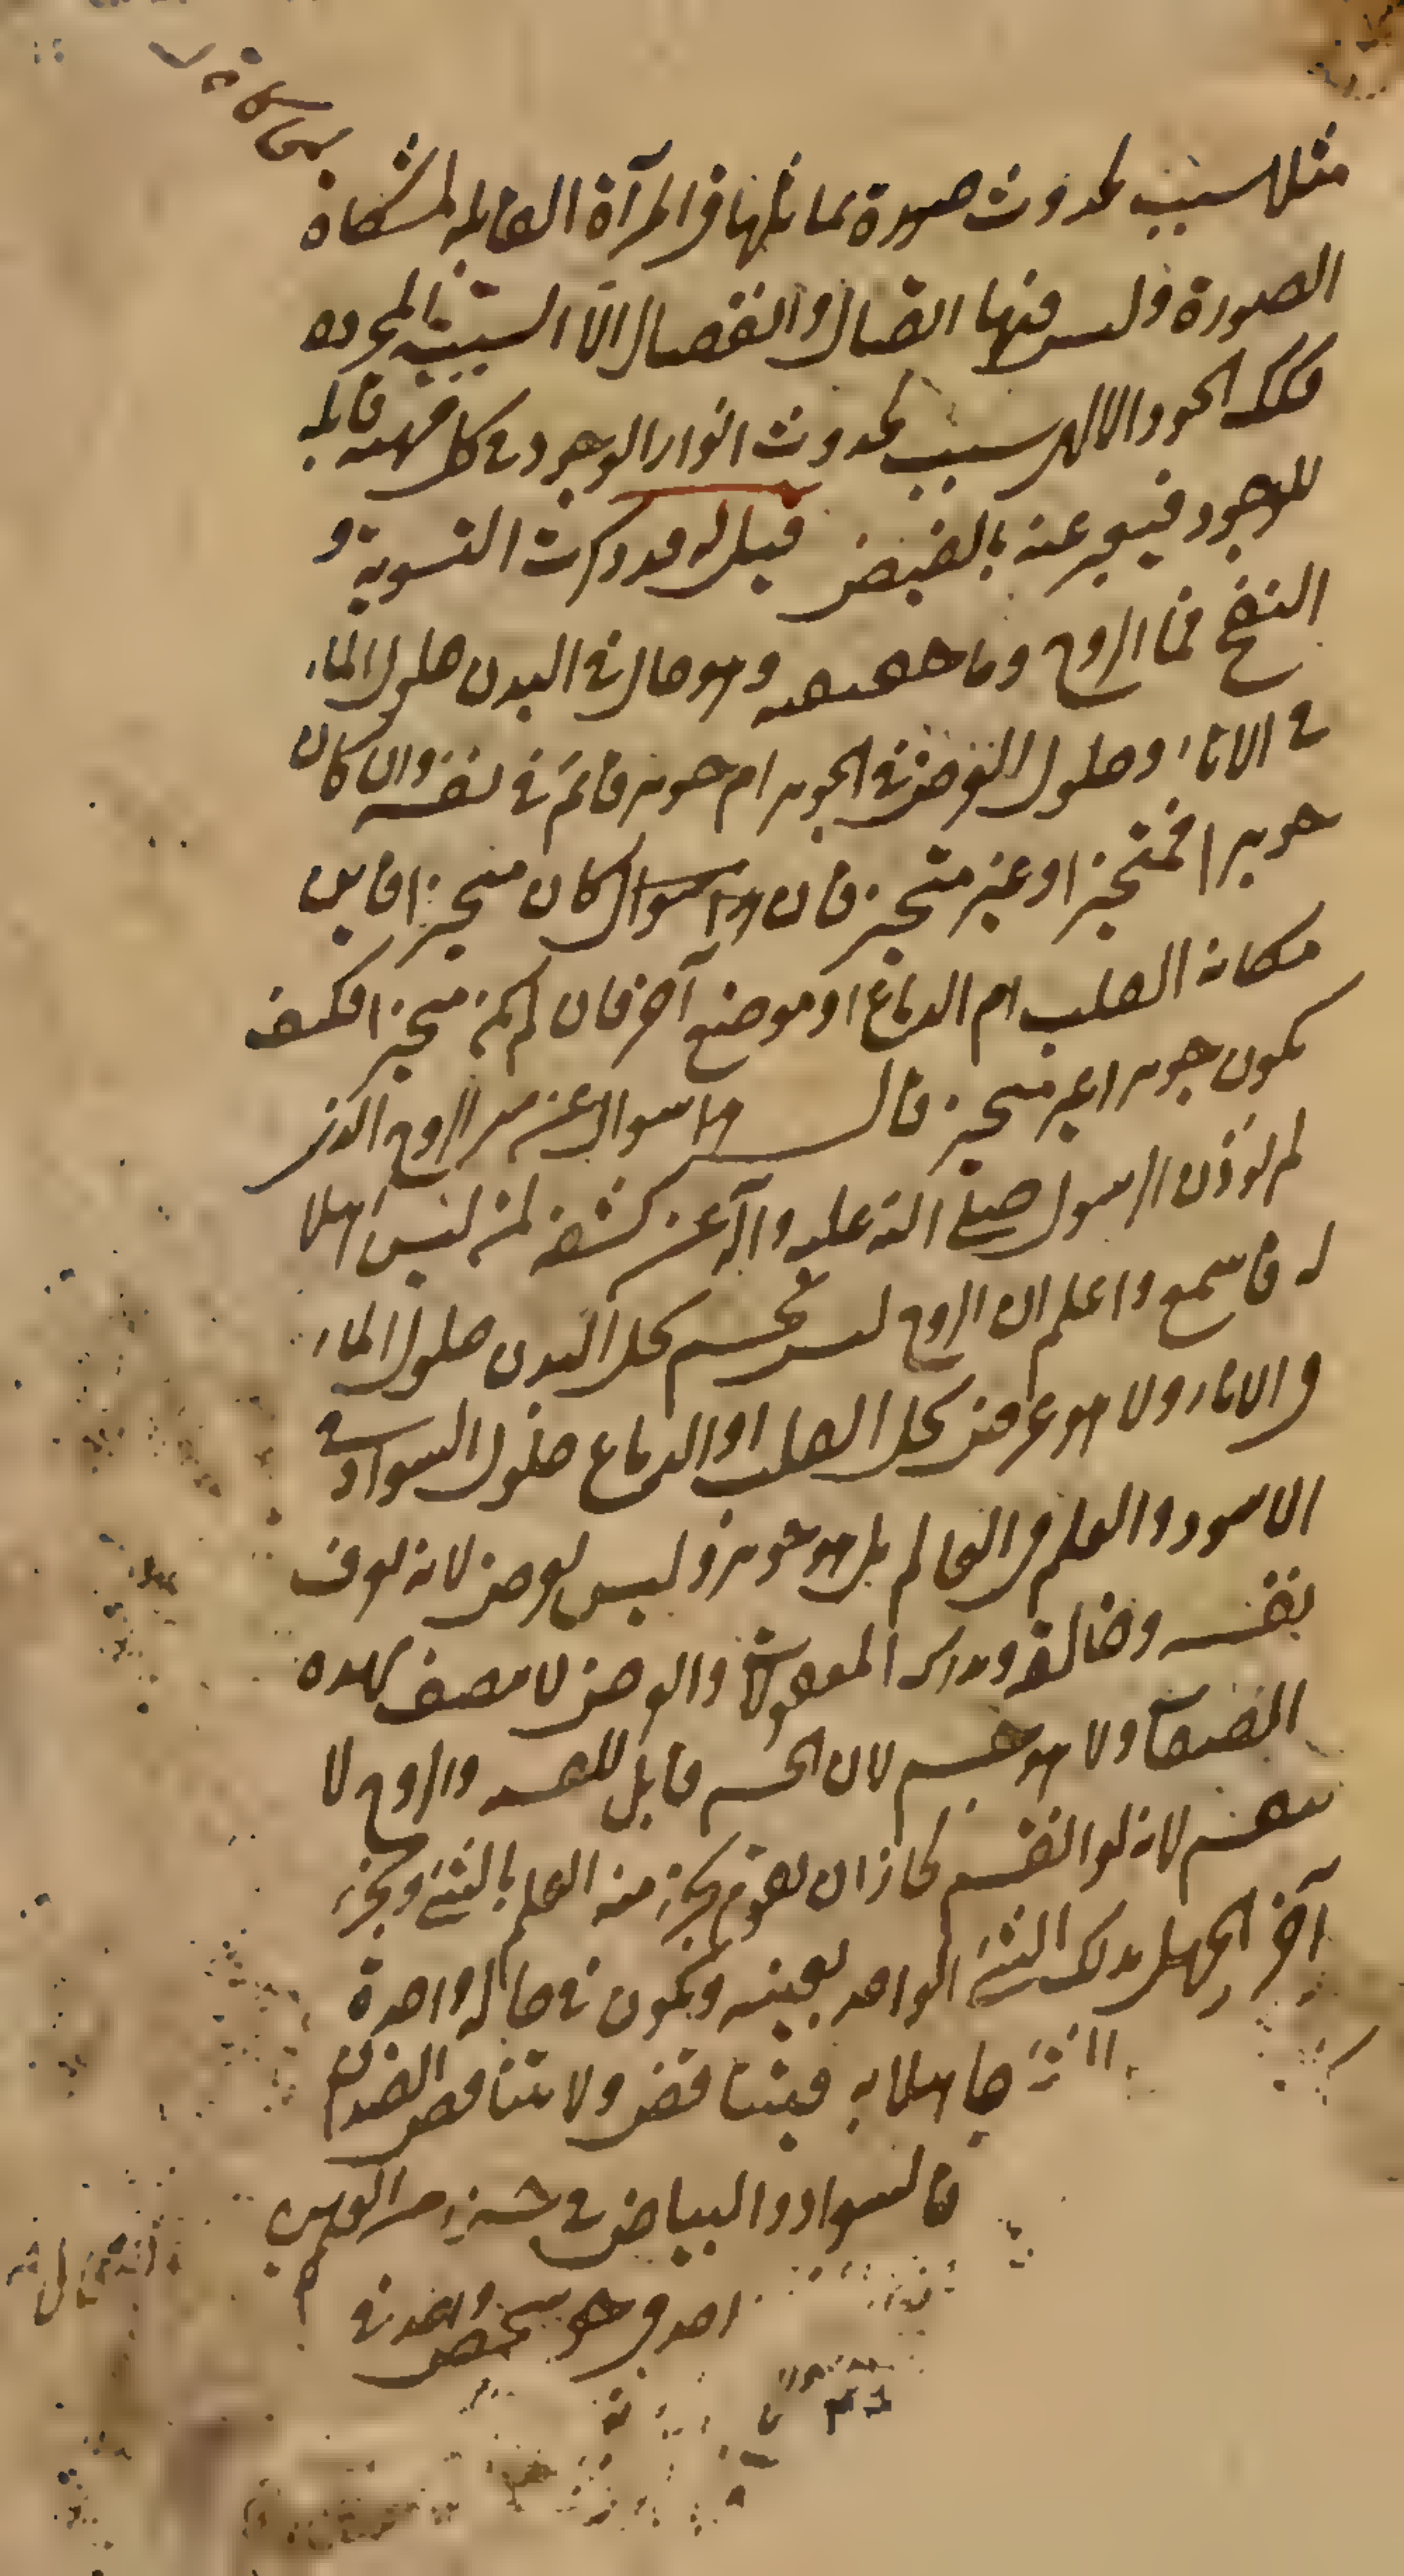 مثلا سبب لحدوث صورة تماثلها فى المرآة القابله لمشكاة
الصورة وليس فيها اتصال وانفصال الا السببية المجرده
فكك الجود الالهى سبب لحدوث انوار الوجود فى كل مهية قابلة
للوجود فيعبر عنه بالفيض قيل له قد ذكرت التسوية و
النفخ فما الروح وما حقيقته وهو حال فى البدن حلول الماء
فى الاناء وحلول العرض فى الجوهر ام جوهر قائم فى نفسه وان كان
جوهرا فمتحيز او غير متحيز فان كان متحيزا فاين
مكانه القلب ام الدماغ او موضع آخر فان لم يكن متحيزا فكيف
يكون جوهرا غير متحيز قال هذا سوال عن سر الروح الذى
لم يوذن الرسول صلى الله عليه وآله عن كشفه لمن ليس اهلا
له فاسمع واعلم ان الروح ليس بجسم يحل البدن حلول الماء
فى الاناء ولا هو عرض يحل القلب او الدماغ حلول السواد فى
الاسود والعلم فى العالم بل هو جوهر وليس بعرض لانه يعرف
نفسه وخالقه ويدرك المعقولات والعرض لا يتصف بهذه
الصفات ولا هو جسم لان الجسم قابل للقسمة والروح لا
ينقسم لانه لو انقسم لجاز ان يقوم بجزء منه العلم بالشئ وبجزء
آخر الجهل بذلك الشئ الواحد بعينه ويكون فى حالة واحدة
جاهلا به فيتناقض ولا يتناقض الضدان
فالسواد والبياض فى جزء من العين